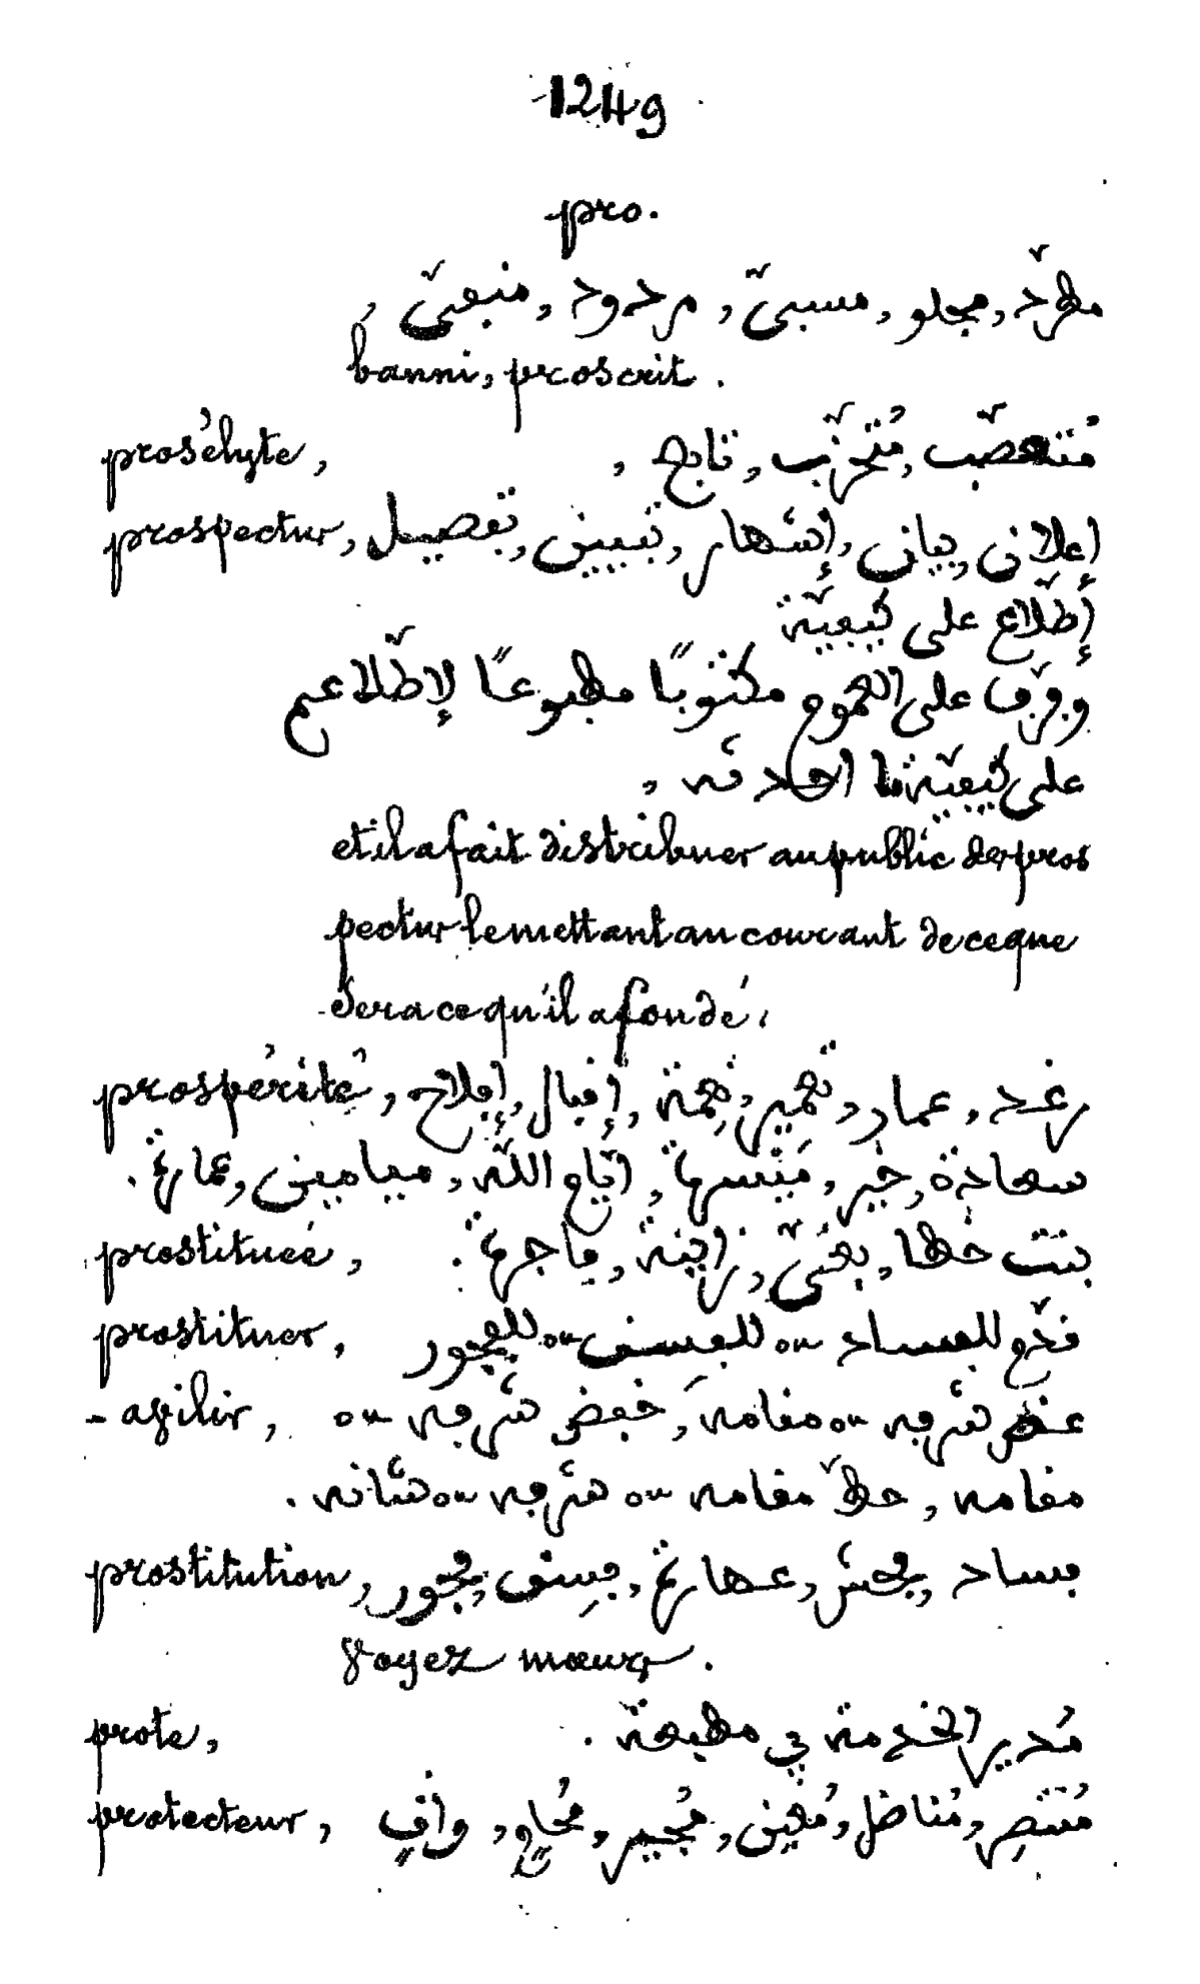 1249
pro.
مطرّد, مجلو, مسبيّ, مردود, منفيّ,
banni, proscrit.
prosélyte, مُتعصّب, مُتحزّب, تابع,
prospectus, إعلان, بيان, إشهار, تبيين, تفصيل,
إطّلاع على كيفيّة
وفرّف على العموم مكتوبًا مطبوعًا لإطّلاعهم
على كيفيّة ما احدثه,
et il a fait distribuer au public des pros
pectus le mettant au courant de ce que
sera ce qu'il a fondé.
prospérité, رغد, عمار, تعمير, نعمة, إقبال, إفلاح,
سعادة, خير, مَيْسرة, ايّام اللّه, ميامين, عمارة.
prostituée, بنت خطا, بغيّ, زانية, فاجرة.
prostituer, قدّم للفساد ou للفسق ou للفجور
- avilir, شرفه ou مقامه, خفض شرفه ou
مقامه, حطّ مقامه ou شرفه ou شانه.
prostitution, فساد, فحش, عهارة, فِسق, فجور,
voyez mœurs.
prote, مُدير الخدمة في مطبعة.
protecteur, مُنتصِر, مُناضل, مُعين, مُجير, مُحامٍ, واقٍ